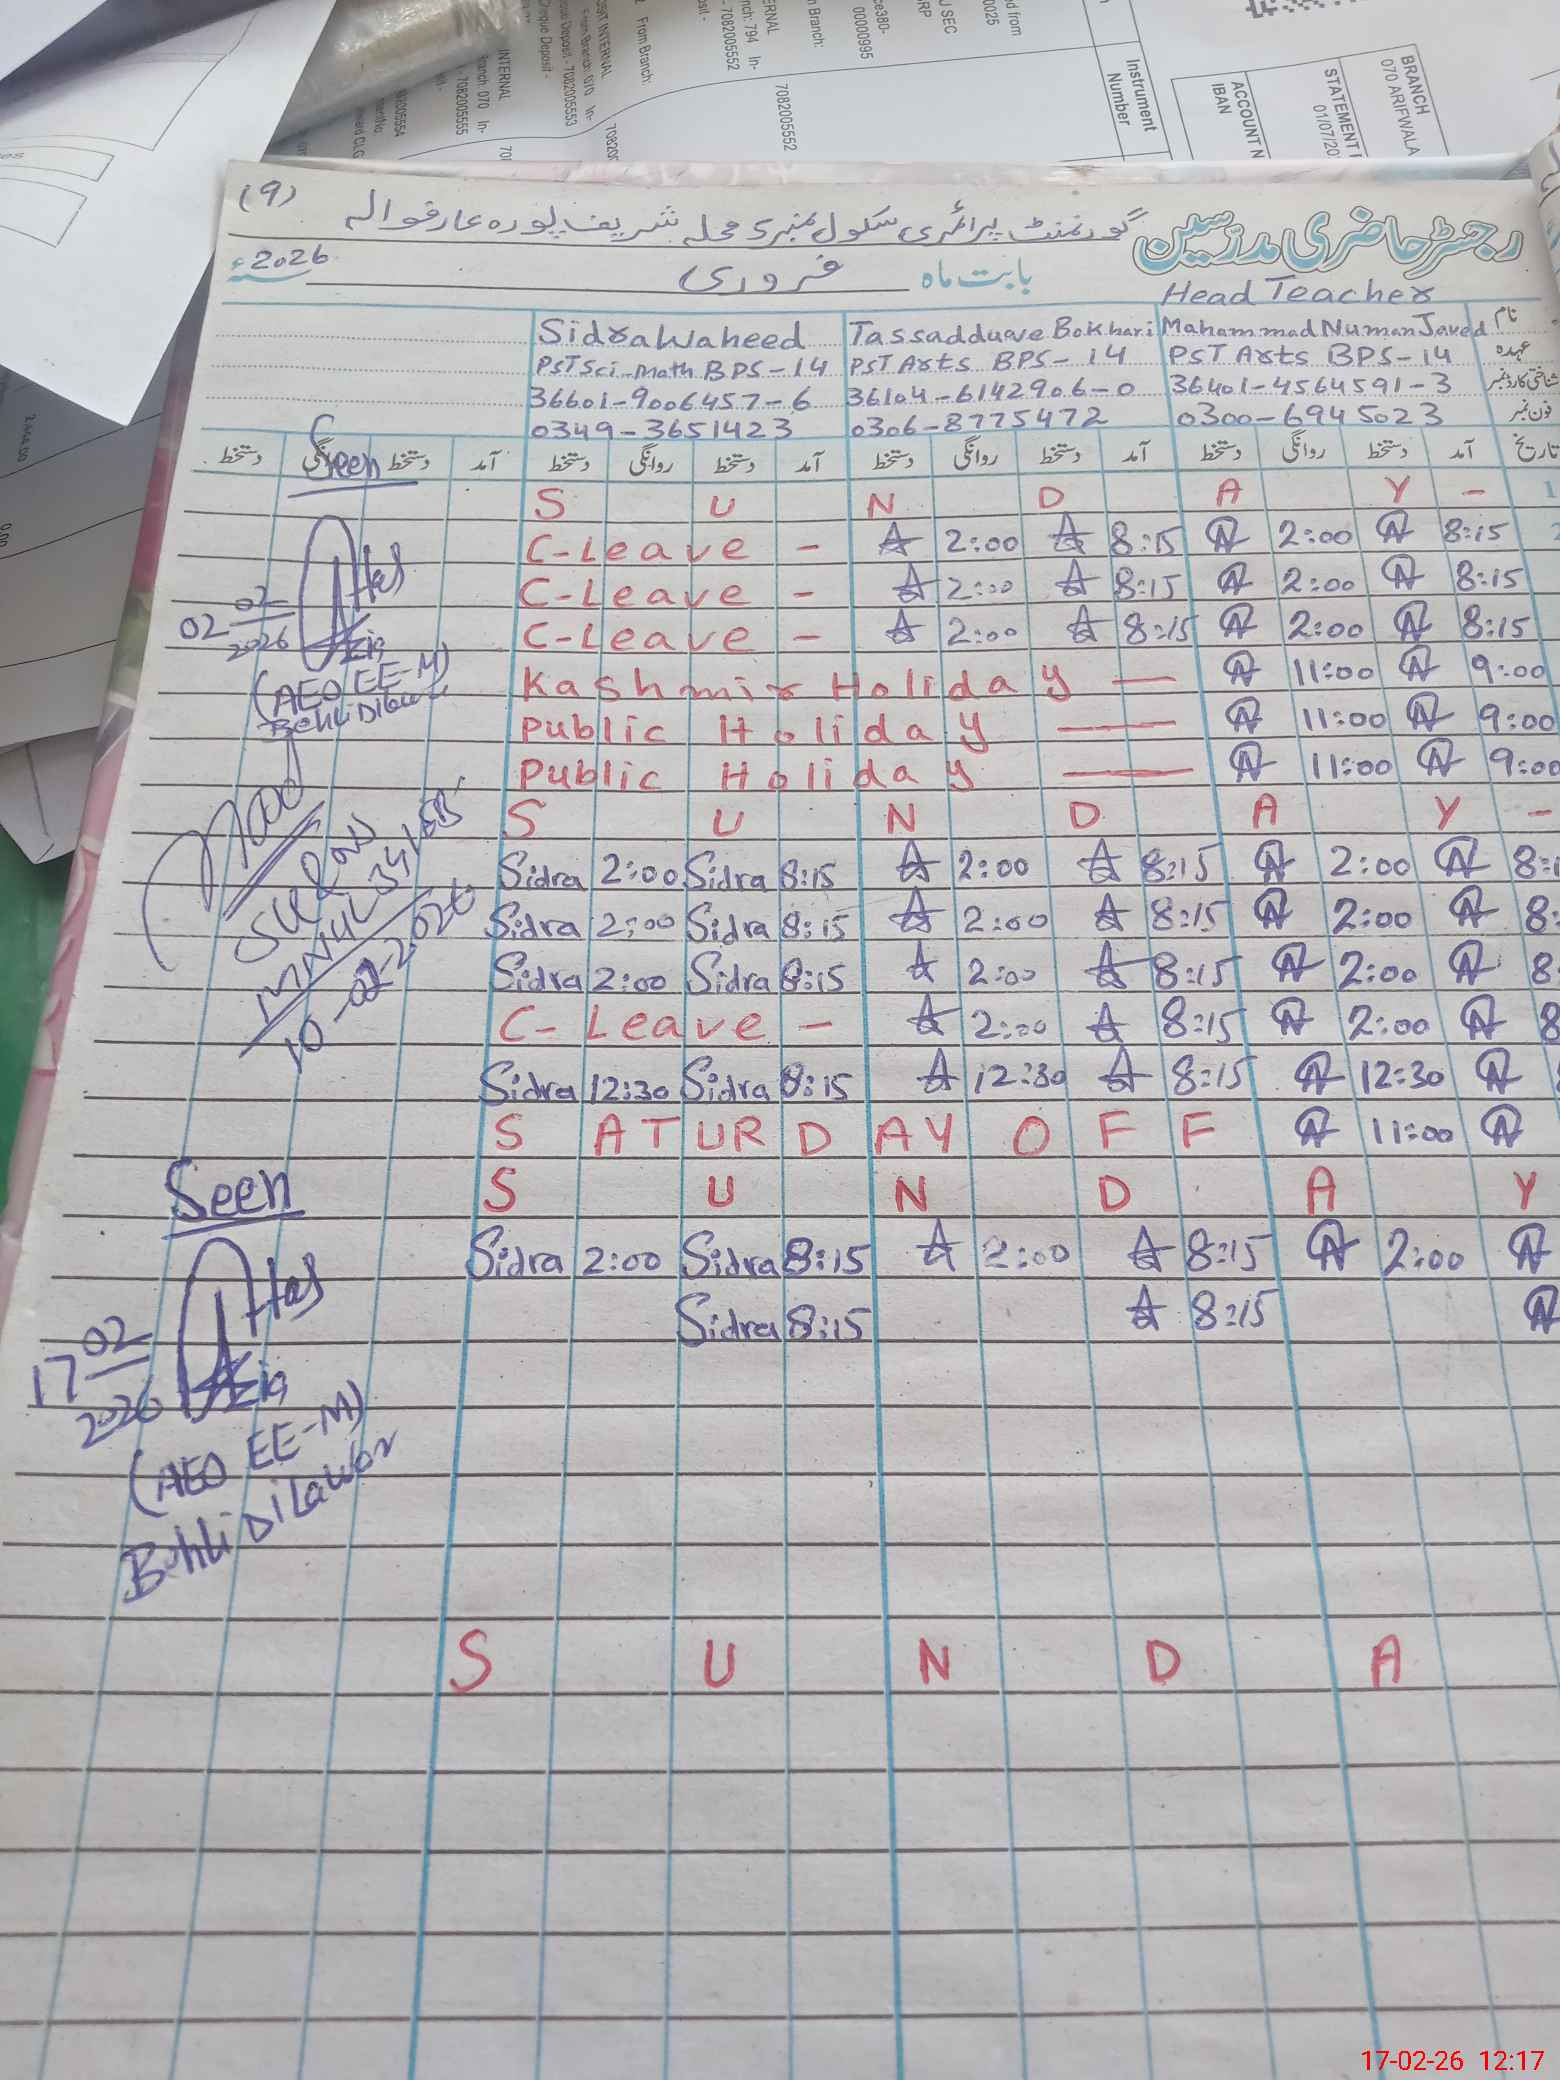 BRANCH
070 ARIFWALA
STATEMENT
01/07/20
ACCOUNT N
IBAN
Instrument
Number
7082005552
00000995
From Branch:
(9)
رجسٹر حاضری مدرسین
گورنمنٹ پرائمری سکول نمبر 5 محلہ شریف پورہ عارفوالہ
بابت ماہ فروری 2026ء
Head Teacher
نام Mahammad Numan Javed Tassadduave Bokhari Sidra Waheed
عہدہ PST Arts BPS-14 PST Arts BPS-14 PST Sci-Math BPS-14
شناختی کارڈ نمبر 36401-4564591-3 36104-6142906-0 36601-9006457-6
فون نمبر 0300-6945023 0306-8775472 0349-3651423
تاریخ آمد دستخط روانگی دستخط آمد دستخط روانگی دستخط آمد دستخط روانگی دستخط آمد دستخط روانگی دستخط
S U N D A Y - 1
C-Leave - 2:00 8:15 2:00 8:15
C-Leave - 2:00 8:15 2:00 8:15
C-Leave - 2:00 8:15 2:00 8:15
Kashmir Holiday — 11:00 9:00
Public Holiday — 11:00 9:00
Public Holiday — 11:00 9:00
S U N D A Y -
Sidra 2:00 Sidra 8:15 2:00 8:15 2:00
Sidra 2:00 Sidra 8:15 2:00 8:15 2:00
Sidra 2:00 Sidra 8:15 2:00 8:15 2:00
C-Leave - 2:00 8:15 2:00
Sidra 12:30 Sidra 8:15 12:30 8:15 12:30
SATURDAY OFF 11:00
S U N D A Y
Sidra 2:00 Sidra 8:15 2:00 8:15 2:00
Sidra 8:15 8:15
S U N D A
Seen
02-02-2026
(AEO EE-M)
Bohli Dilawar
10-02-2026
Seen
17-02-2026
(AEO EE-M)
Bohli Dilawar
17-02-26 12:17